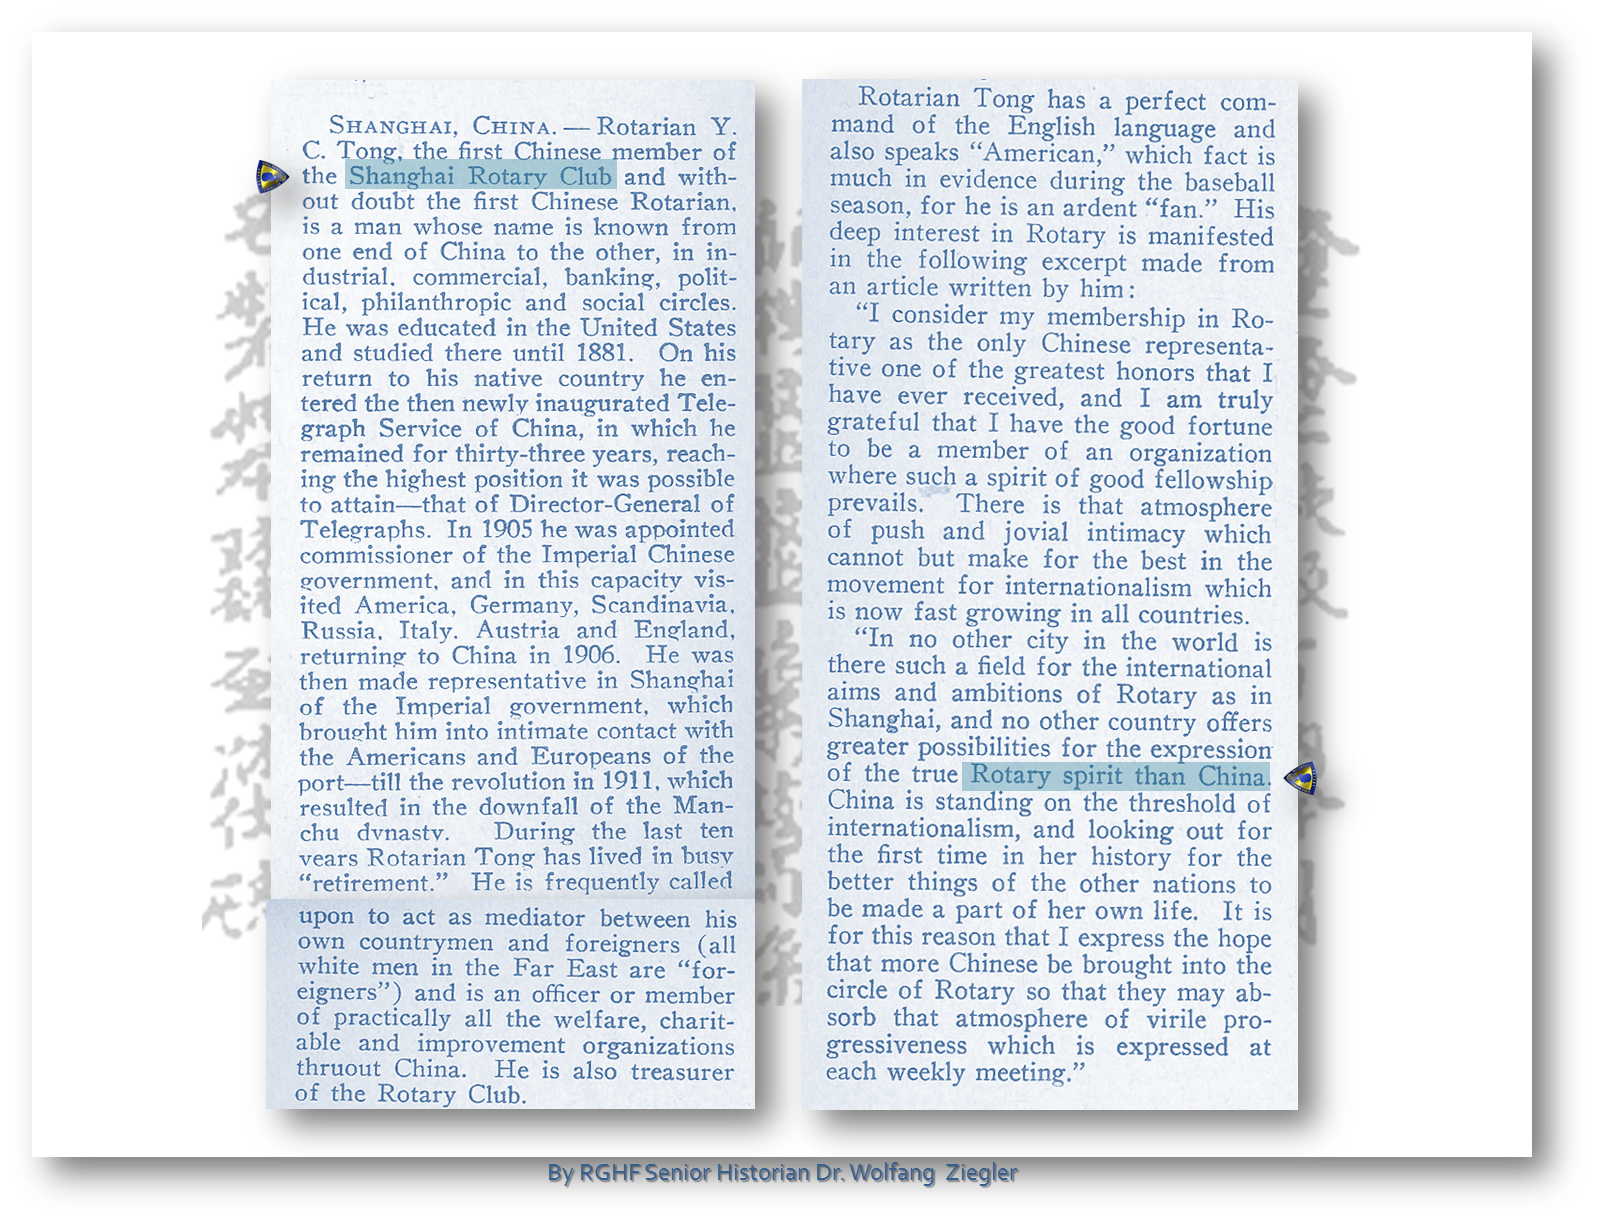 SHANGHAI, CHINA. — Rotarian Y.
C. Tong, the first Chinese member of
the Shanghai Rotary Club and with-
out doubt the first Chinese Rotarian,
is a man whose name is known from
one end of China to the other, in in-
dustrial, commercial, banking, polit-
ical, philanthropic and social circles.
He was educated in the United States
and studied there until 1881. On his
return to his native country he en-
tered the then newly inaugurated Tele-
graph Service of China, in which he
remained for thirty-three years, reach-
ing the highest position it was possible
to attain—that of Director-General of
Telegraphs. In 1905 he was appointed
commissioner of the Imperial Chinese
government, and in this capacity vis-
ited America, Germany, Scandinavia,
Russia, Italy. Austria and England,
returning to China in 1906. He was
then made representative in Shanghai
of the Imperial government, which
brought him into intimate contact with
the Americans and Europeans of the
port—till the revolution in 1911, which
resulted in the downfall of the Man-
chu dynasty. During the last ten
years Rotarian Tong has lived in busy
“retirement.” He is frequently called
upon to act as mediator between his
own countrymen and foreigners (all
white men in the Far East are “for-
eigners”) and is an officer or member
of practically all the welfare, charit-
able and improvement organizations
thruout China. He is also treasurer
of the Rotary Club.
Rotarian Tong has a perfect com-
mand of the English language and
also speaks “American,” which fact is
much in evidence during the baseball
season, for he is an ardent “fan.” His
deep interest in Rotary is manifested
in the following excerpt made from
an article written by him:
“I consider my membership in Ro-
tary as the only Chinese representa-
tive one of the greatest honors that I
have ever received, and I am truly
grateful that I have the good fortune
to be a member of an organization
where such a spirit of good fellowship
prevails. There is that atmosphere
of push and jovial intimacy which
cannot but make for the best in the
movement for internationalism which
is now fast growing in all countries.
“In no other city in the world is
there such a field for the international
aims and ambitions of Rotary as in
Shanghai, and no other country offers
greater possibilities for the expression
of the true Rotary spirit than China.
China is standing on the threshold of
internationalism, and looking out for
the first time in her history for the
better things of the other nations to
be made a part of her own life. It is
for this reason that I express the hope
that more Chinese be brought into the
circle of Rotary so that they may ab-
sorb that atmosphere of virile pro-
gressiveness which is expressed at
each weekly meeting.”
By RGHF Senior Historian Dr. Wolfang Ziegler